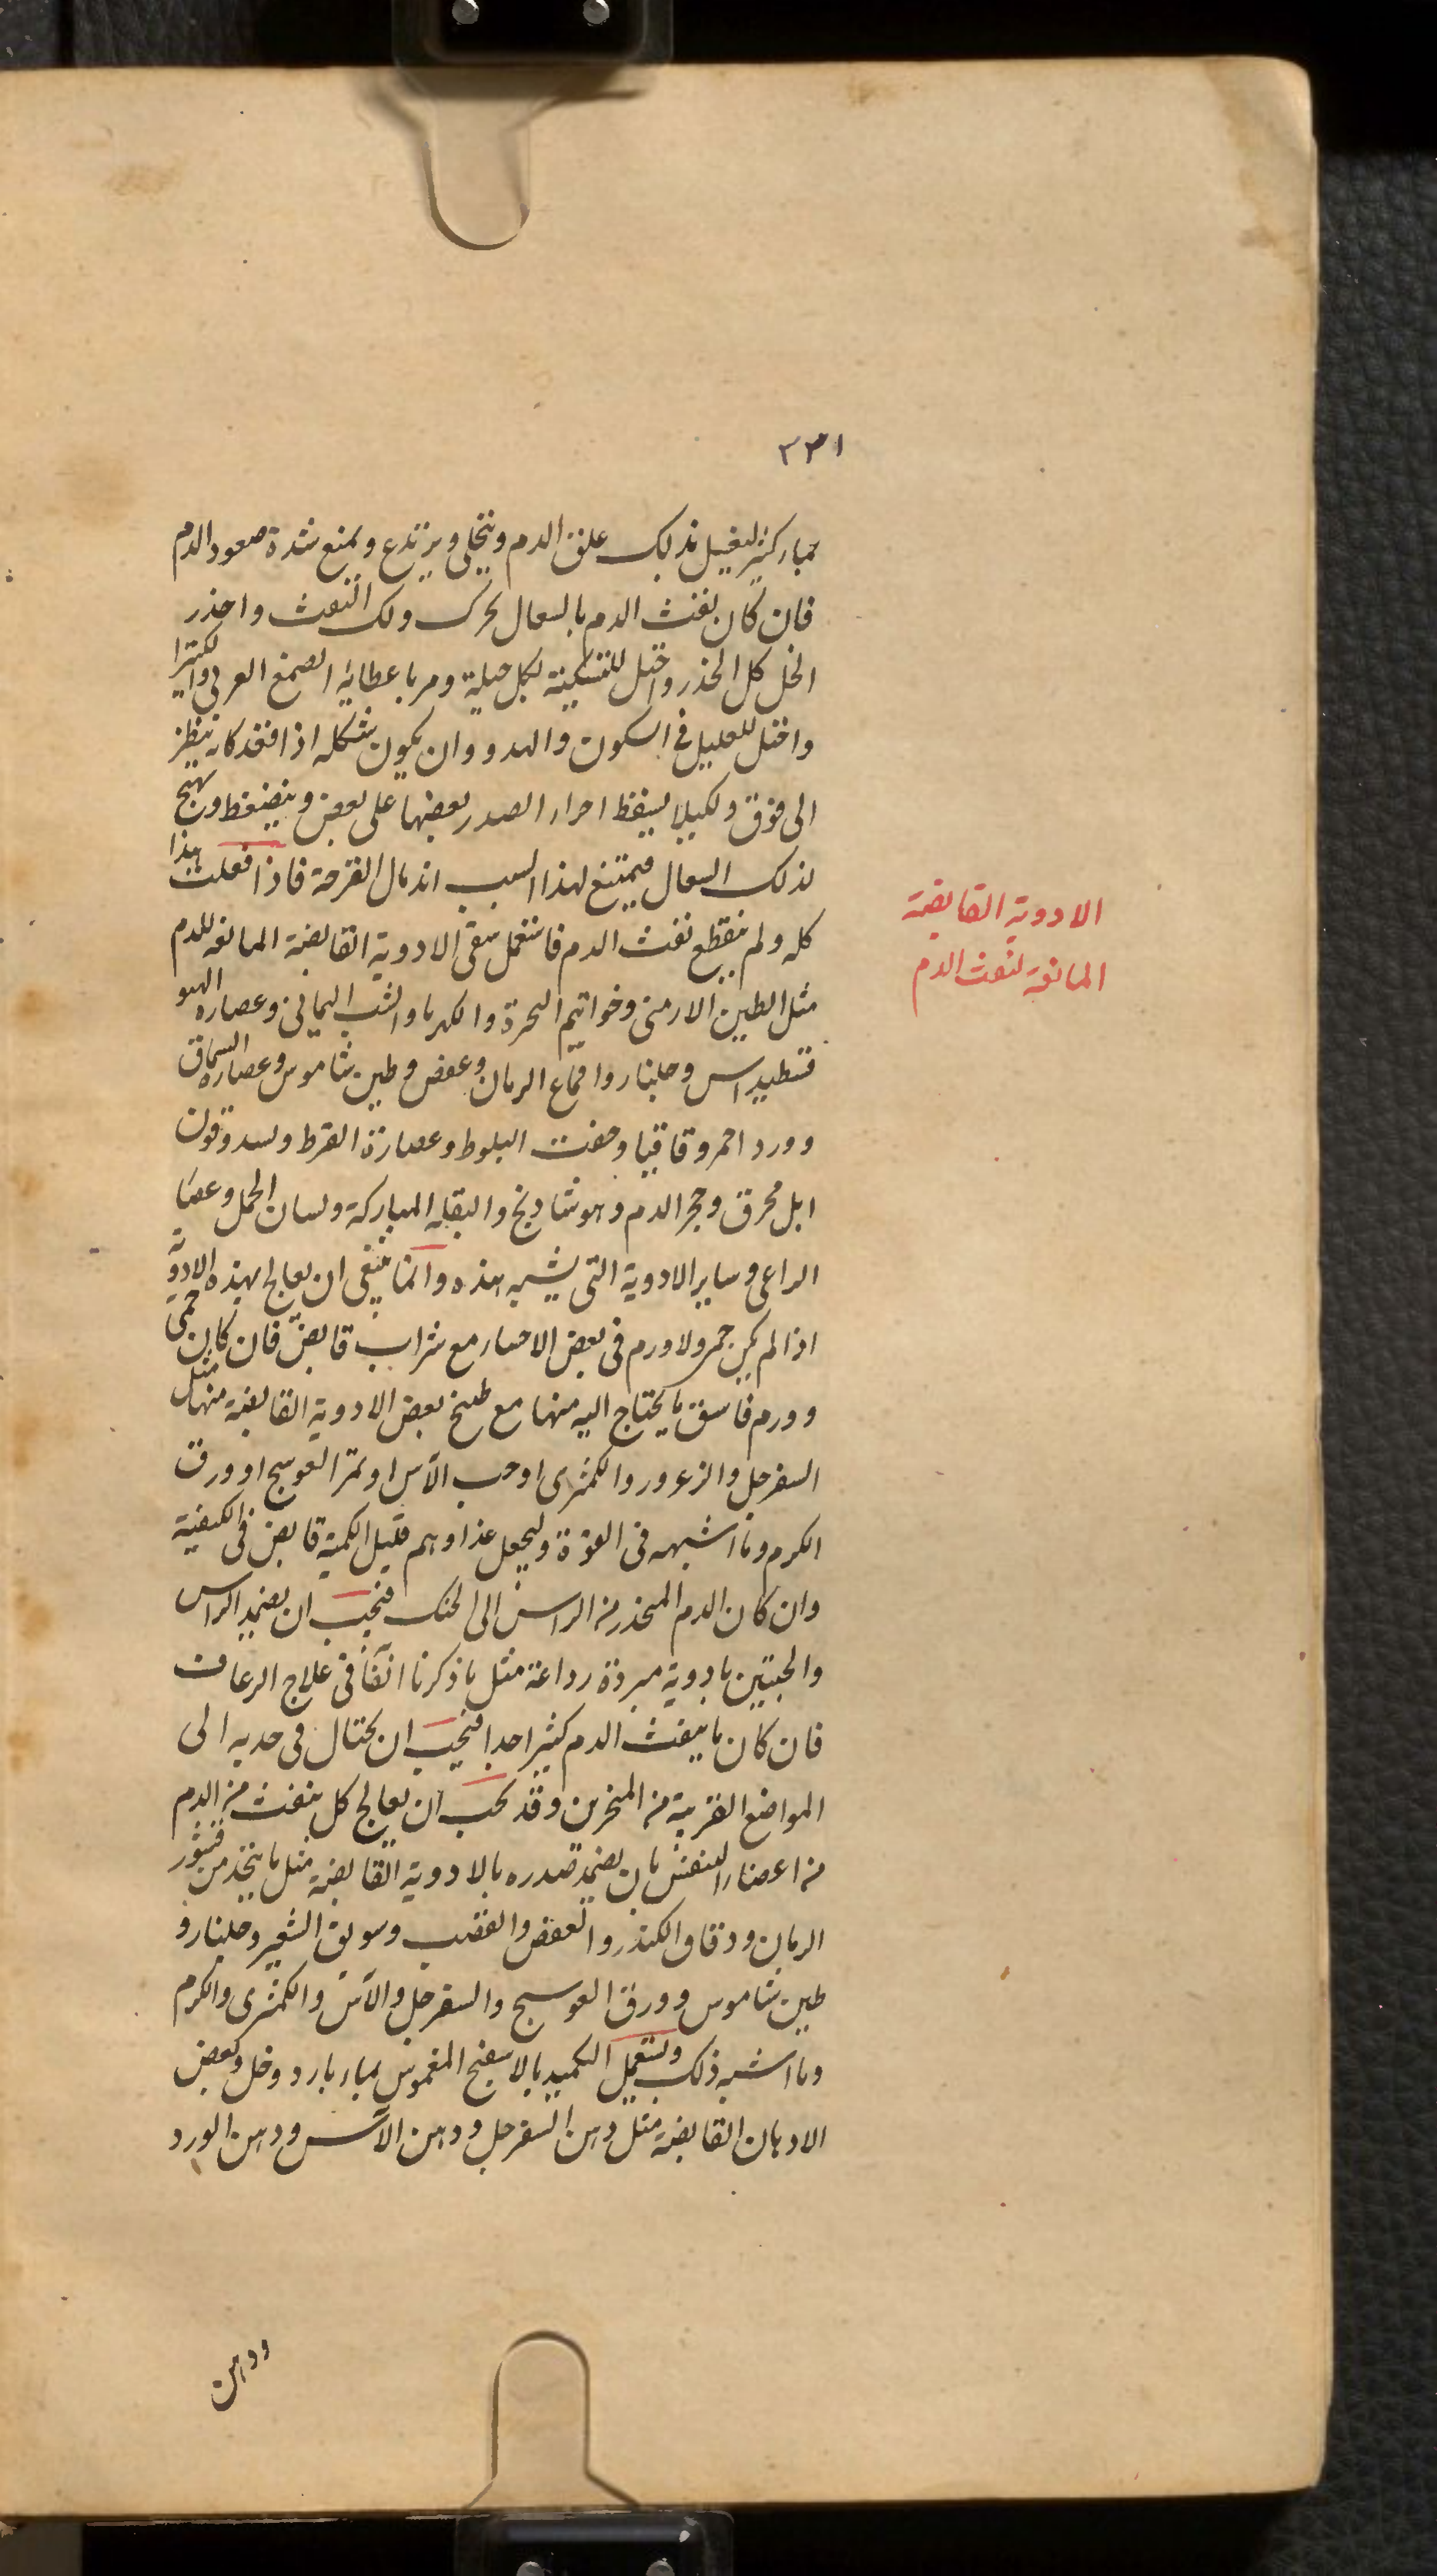 ٣٣١
بماء كثير ليغسل بذلك علق الدم وينحل ويرتدع ويمنع شدة صعود الدم
فان كان نفث الدم بالسعال يحرك ذلك النفث واحذر
الخل كل الحذر واحتل للتسكينه بكل حيلة ومر باعطائه الصمغ العربى والكثيرا
واحتل للعليل فى السكون والهدو وان يكون شكله اذا قعد كانه ينظر
الى فوق ولكيلا يسقط اجزاء الصدر بعضها على بعض وينضغط ويهيج
لذلك السعال فيمتنع لهذا السبب اندمال القرحة فاذا فعلت هذا
كله ولم ينقطع نفث الدم فاستعمل سقى الادوية القابضة المانعة للدم
مثل الطين الارمنى وخواتيم البحرة والكهربا والشب اليمانى وعصارة الهيو
فسطيداس وجلنار واقماع الرمان وعفص وطين شاموس وعصارة السماق
وورد احمر وقاقيا وجفت البلوط وعصارة القرط وقرن
ابل محرق وحجر الدم وهو شادنج والبقله المباركة ولسان الحمل وعصا
الراعى وساير الادوية التى يشبه هذه وانما ينبغى ان يعالج بهذه الادوية
اذا لم يكن حمى ولا ورم فى بعض الاحشاء مع شراب قابض فان كان حمى
وورم فاسق ما يحتاج اليه منها مع طبيخ بعض الادوية القابضة منها مثل
السفرجل والزعرور والكمثرى او حب الآس او ثمر العوسج او ورق
الكرم وما اشبهه فى القوة وليجعل غذاوهم قليل الكمية قابض فى الكيفية
وان كان الدم المنحدر من الراس الى الحنك فيجب ان يضمد الراس
والجبتين بادوية مبردة رداعة مثل ما ذكرنا انفا فى علاج الرعاف
فان كان ما ينفث الدم كثيرا جدا فيجب ان يحتال فى جذبه الى
المواضع القريبة من المنخرين وقد يجب ان يعالج كل ينفث من الدم
من اعضاء التنفس بان يضمد صدره بالادوية القابضة مثل ما يتخذ من قشور
الرمان ودقاق الكندر والعفص والقضب وسويق الشعير وجلنار و
طين شاموس وورق العوسج والسفرجل والآس والكمثرى والكرم
وما اشبه ذلك ويستعمل التكميد بالاسفنج المغموس بماء بارد وخل وبعض
الادهان القابضة مثل دهن السفرجل ودهن الآس ودهن الورد
ودهن
الادوية القابضة
المانعة لنفث الدم